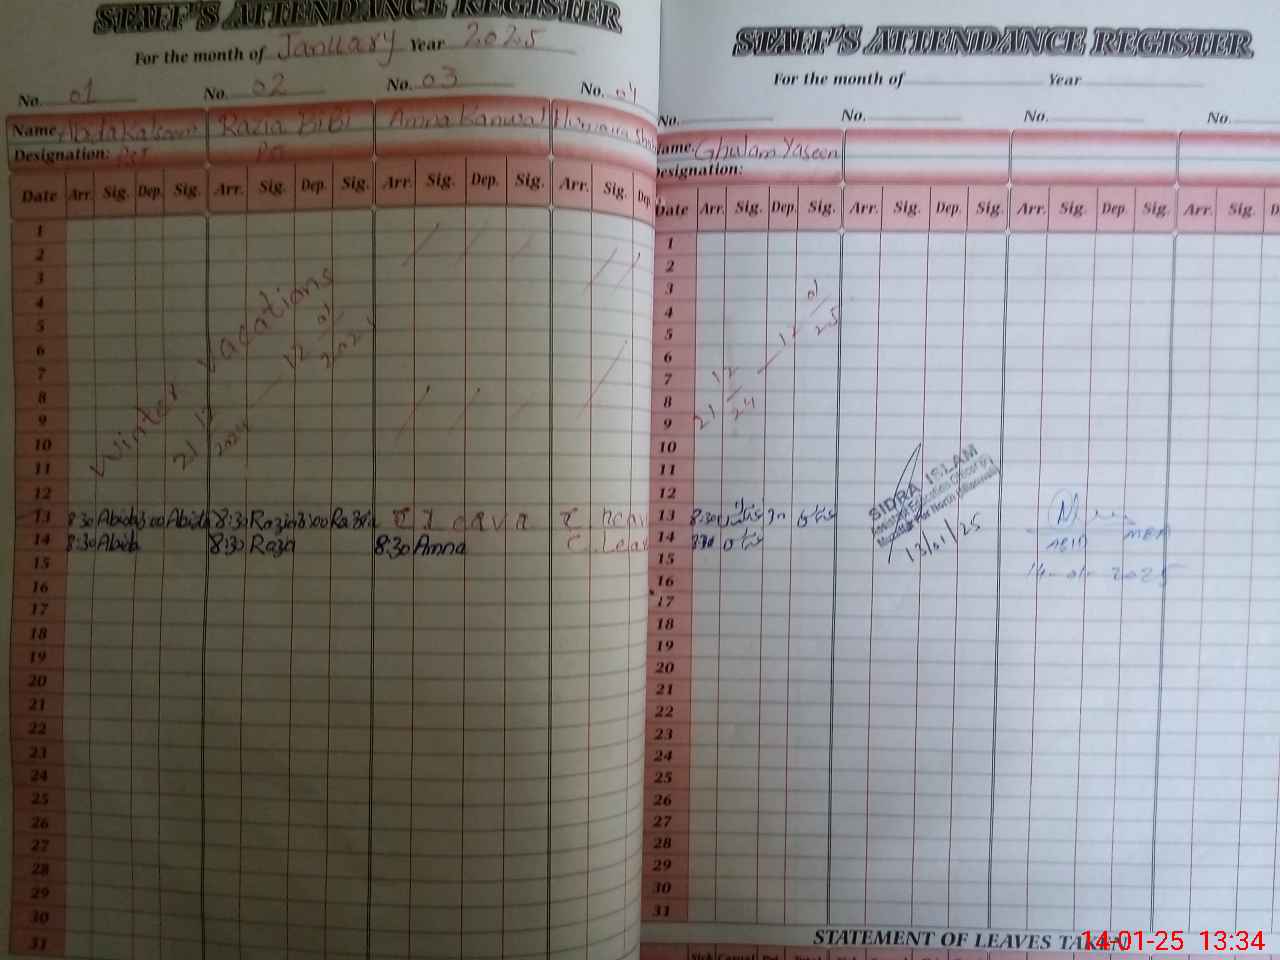 STAFF'S ATTENDANCE REGISTER
For the month of January Year 2025
No. 01 No. 02 No. 03 No. 04
Name. Abida Kalsoom Razia BiBi Amna Kanwal Humaira
Designation: PST
Date Arr. Sig. Dep. Sig. Arr. Sig. Dep. Sig. Arr. Sig. Dep. Sig. Arr. Sig. Dep.
1
2
3
4
5
6
7
8
9
10
11
12
Winter vacations
21 12 2024 12 01
13 8:30 Abida 3:00 Abida 8:30 Razia 3:00 Razia
14 8:30 Abida 8:30 Razia 8:30 Amna C. Lea
15
16
17
18
19
20
21
22
23
24
25
26
27
28
29
30
31
STAFF'S ATTENDANCE REGISTER
For the month of Year
No. No. No.
ame. Ghulam Yaseen
esignation:
Date Arr. Sig. Dep. Sig. Arr. Sig. Dep. Sig. Arr. Sig. Dep. Sig. Arr. Sig. D
1
2
3
4
5
6
7
8
9
10
11
12
21 12 24 12 01 25
13 8:30
14
15
16
17
18
19
20
21
22
23
24
25
26
27
28
29
30
31
SIDRA ISLAM
13/01/25
ABID MEA
14-01-2025
STATEMENT OF LEAVES TAKEN
14-01-25 13:34